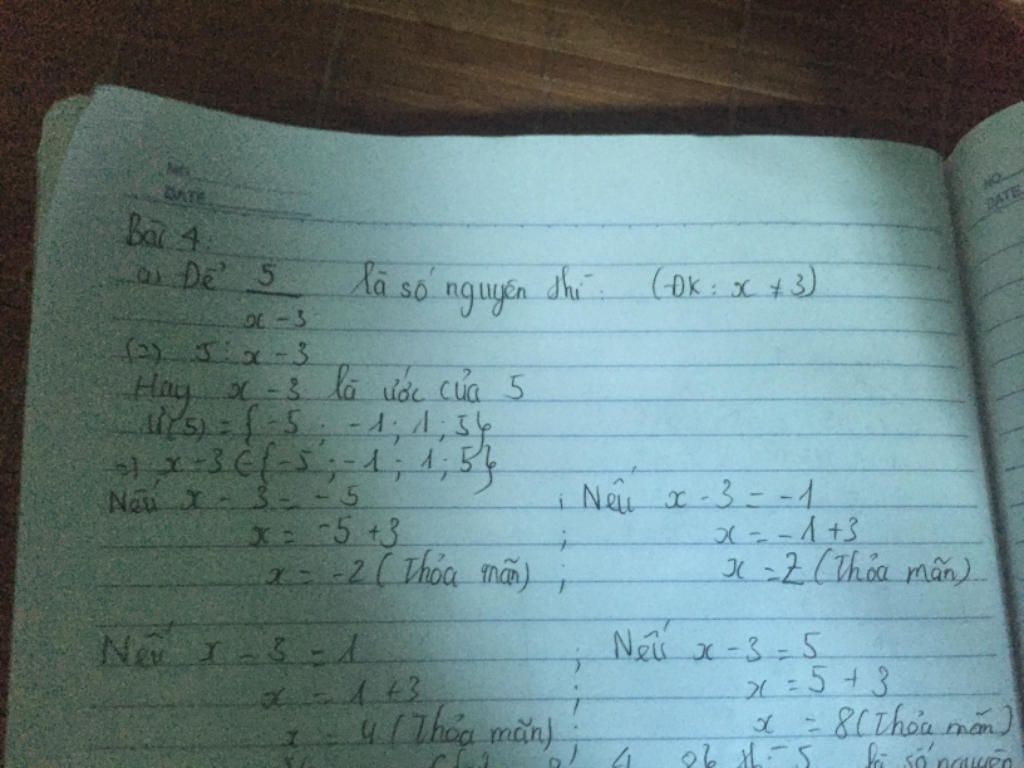 NO.
DATE
NO
DATE
Bài 4:
a) Để 5/(x-3) là số nguyên thì: (ĐK: x ≠ 3)
(=) 5 ⋮ x-3
Hay x-3 là ước của 5
Ư(5) = {-5 ; -1 ; 1 ; 5}
=) x-3 ∈ {-5 ; -1 ; 1 ; 5}
Nếu x - 3 = -5 ; Nếu x - 3 = -1
x = -5 + 3 ; x = -1 + 3
x = -2 (Thỏa mãn) ; x = 2 (Thỏa mãn)
Nếu x - 3 = 1 ; Nếu x - 3 = 5
x = 1 + 3 ; x = 5 + 3
x = 4 (Thỏa mãn) ; x = 8 (Thỏa mãn)
5 là số nguyên